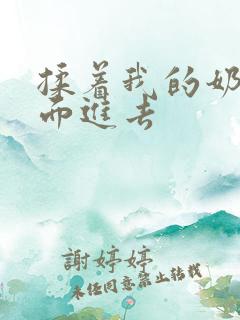 揉着我的奶
而进去
謝婷婷
未经同意禁止转载